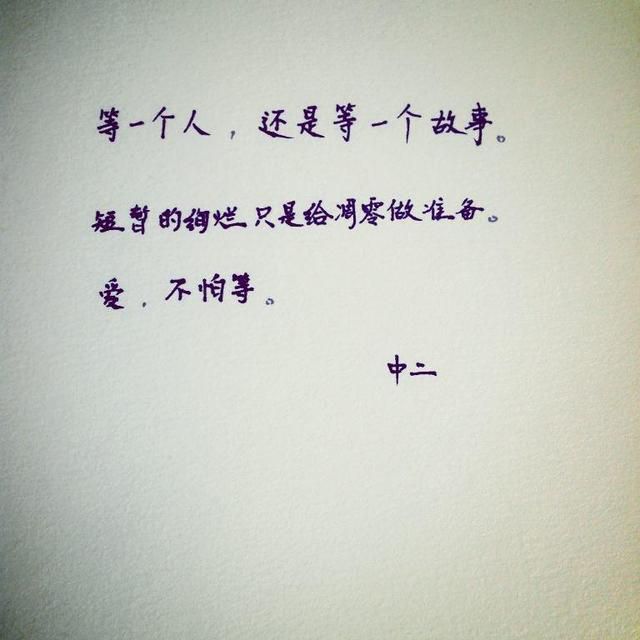 等一个人，还是等一个故事。
短暂的绚烂只是给凋零做准备。
爱，不怕等。
中二